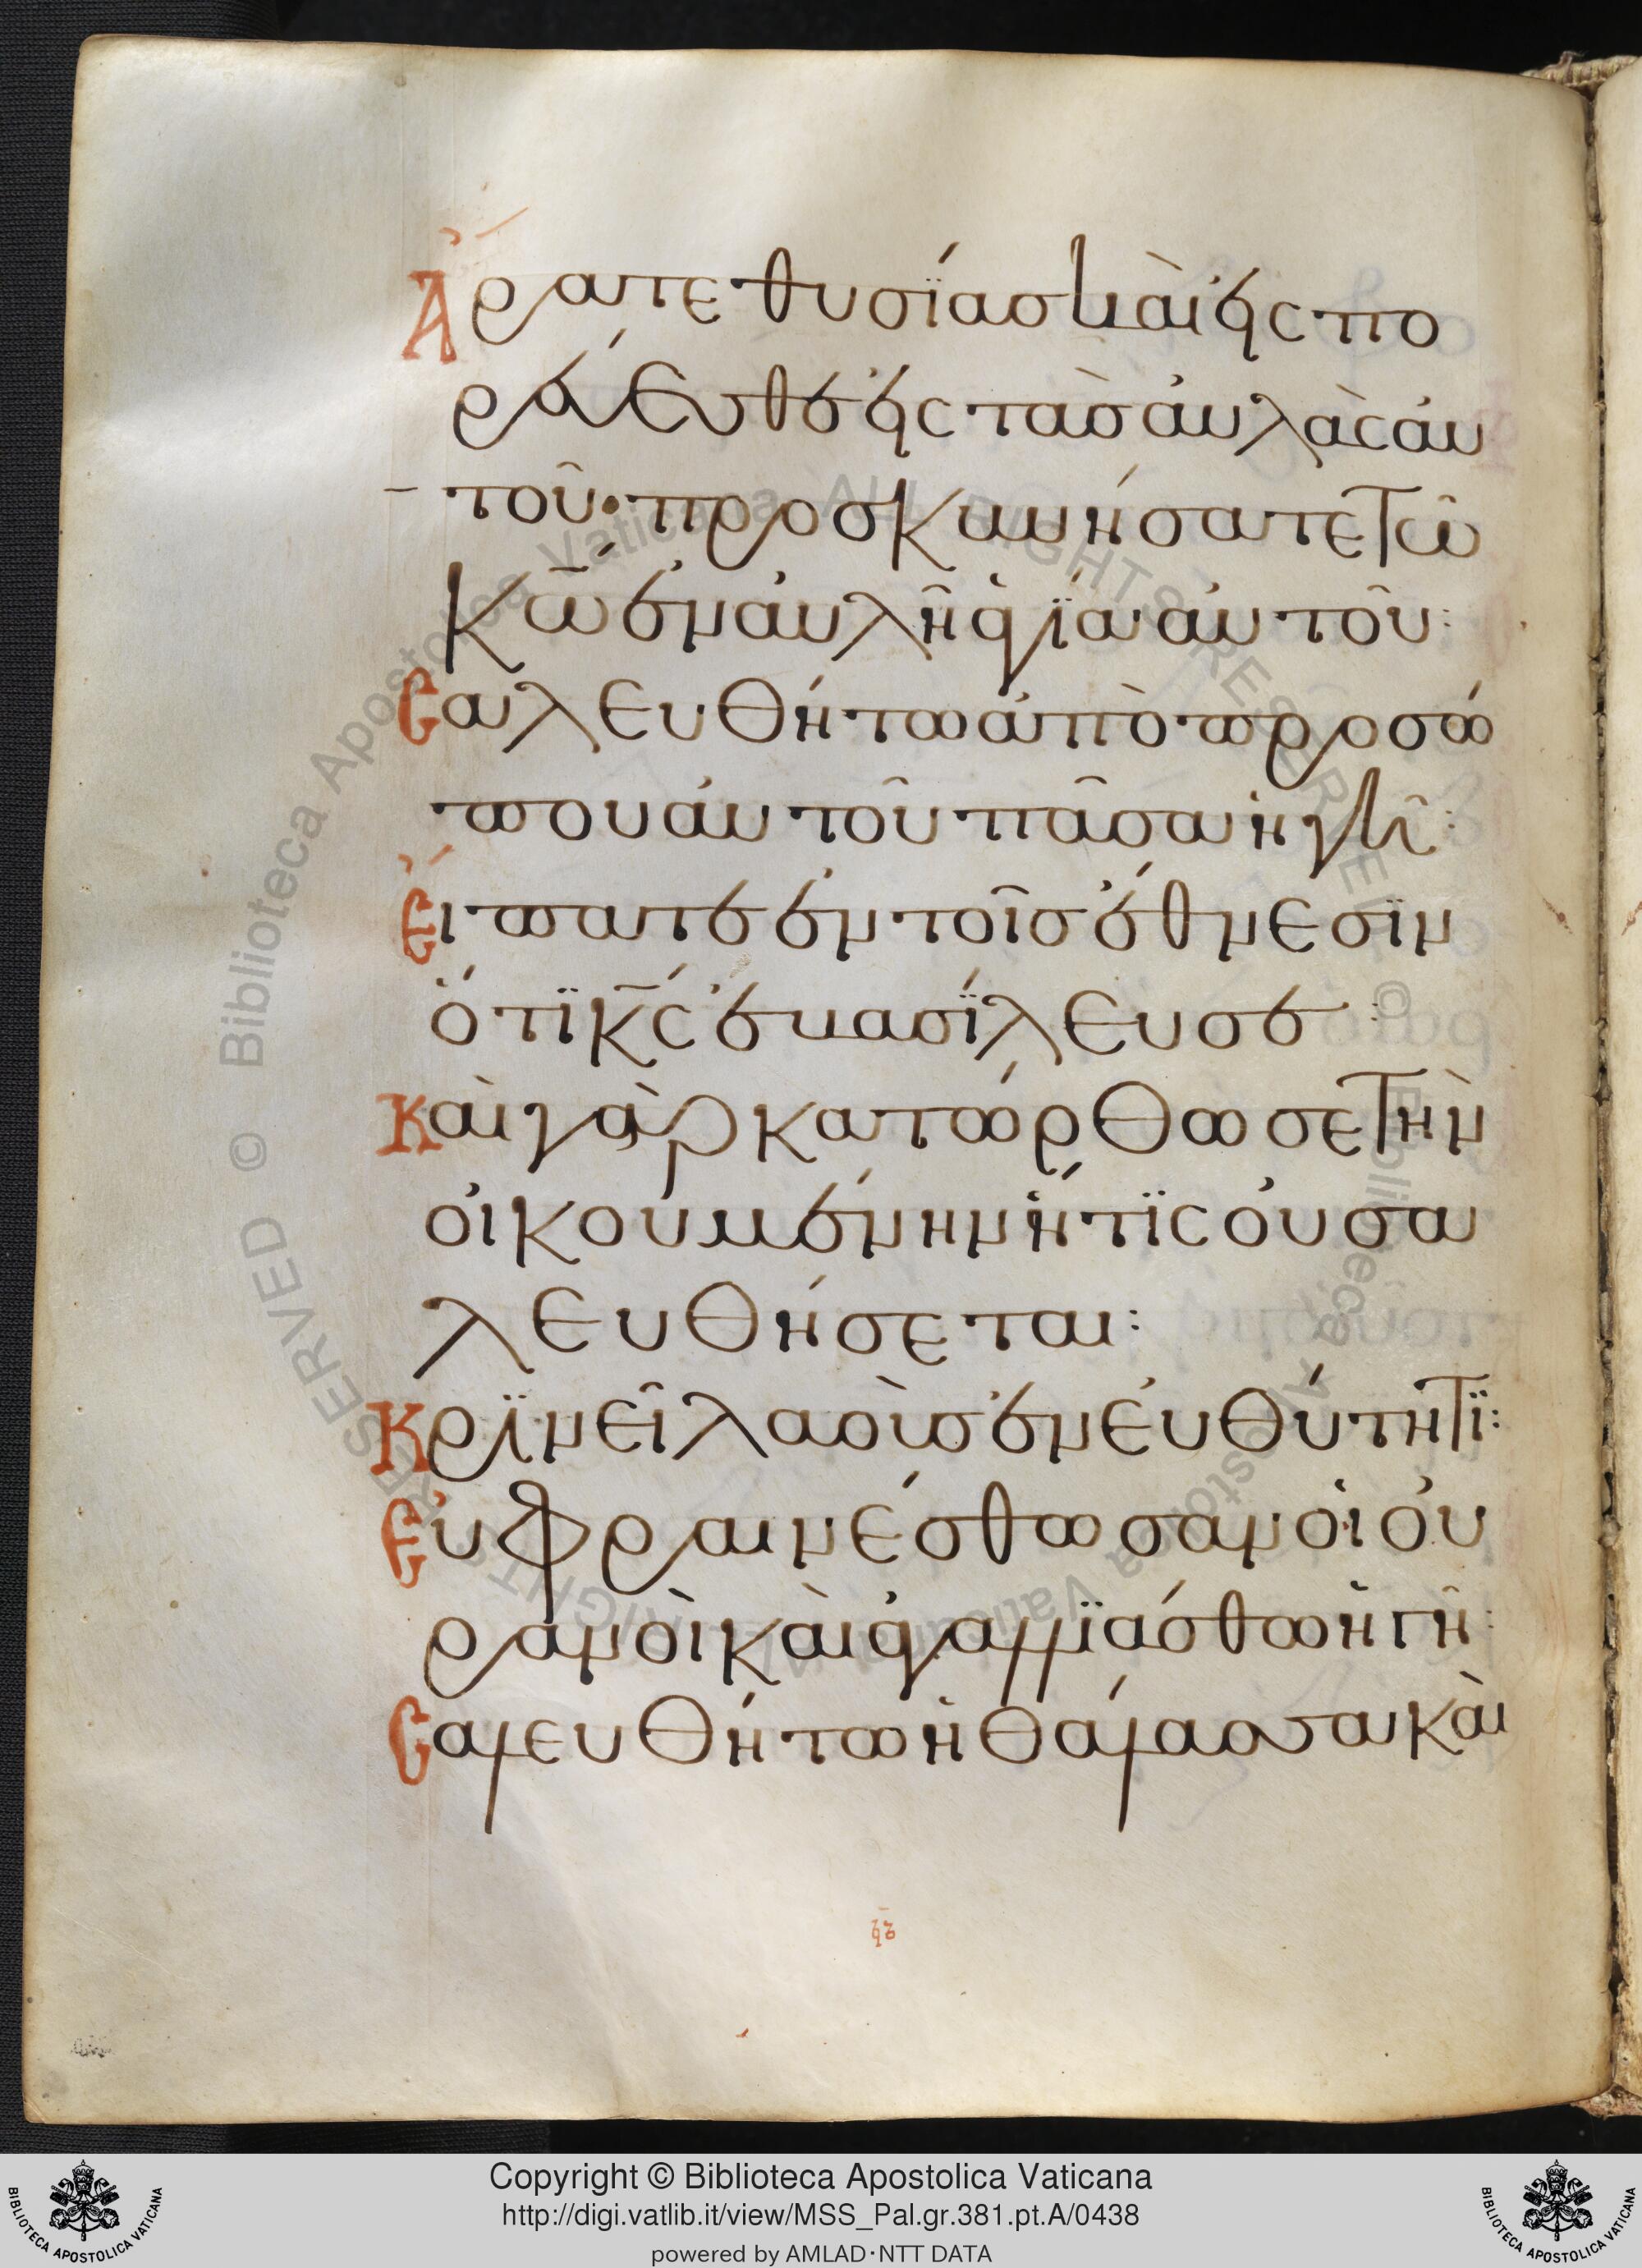 Ἄρατε θυσΐας καὶ εἰσπο
ρέυεσθε ἐις τὰς ἀυλὰς ἀυ
τοῦ· προσκυνήσατε τῶ
κ̅ω̅ ἐν ἀυλῆ ἁγΐα ἀυτοῦ:
Σαλευθήτω ἀπὸ προσώ
που ἀυτοῦ πᾶσα ἡ γῆ:
Ἔιπατε ἐν τοῖς ἔθνεσϊν
ὅτϊ κ̅ς̅ ἐβασΐλευσε:
Καὶ γὰρ κατώρθωσε τὴν
ὀικουμένην ἥτϊς ὀυ σα
λευθήσεται:
Κρϊνεῖ λαοὺς ἐν ἐυθύτητϊ:
Ἐυφραινέσθωσαν ὁι ὀυ
ρανοὶ καὶ ἀγαλλϊάσθω ἡ γῆ:
Σαλευθήτω ἡ θάλασσα καὶ
Copyright © Biblioteca Apostolica Vaticana
http://digi.vatlib.it/view/MSS_Pal.gr.381.pt.A/0438
powered by AMLAD·NTT DATA
BIBLIOTECA APOSTOLICA VATICANA
BIBLIOTECA APOSTOLICA VATICANA